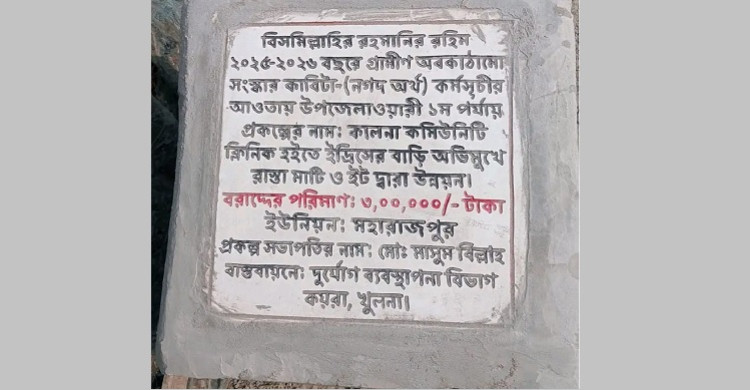 বিসমিল্লাহির রহমানির রহিম
২০২৫-২০২৬ বছরে গ্রামীণ অবকাঠামো
সংস্কার কাবিটা-(নগদ অর্থ) কর্মসূচীর
আওতায় উপজেলাওয়ারী ১ম পর্যায়
প্রকল্পের নাম: কালনা কমিউনিটি
ক্লিনিক হইতে ইদ্রিসের বাড়ি অভিমুখে
রাস্তা মাটি ও ইট দ্বারা উন্নয়ন।
বরাদ্দের পরিমাণ: ৩,০০,০০০/- টাকা
ইউনিয়ন: মহারাজপুর
প্রকল্প সভাপতির নাম: মোঃ মাসুম বিল্লাহ
বাস্তবায়নে: দুর্যোগ ব্যবস্থাপনা বিভাগ
কয়রা, খুলনা।